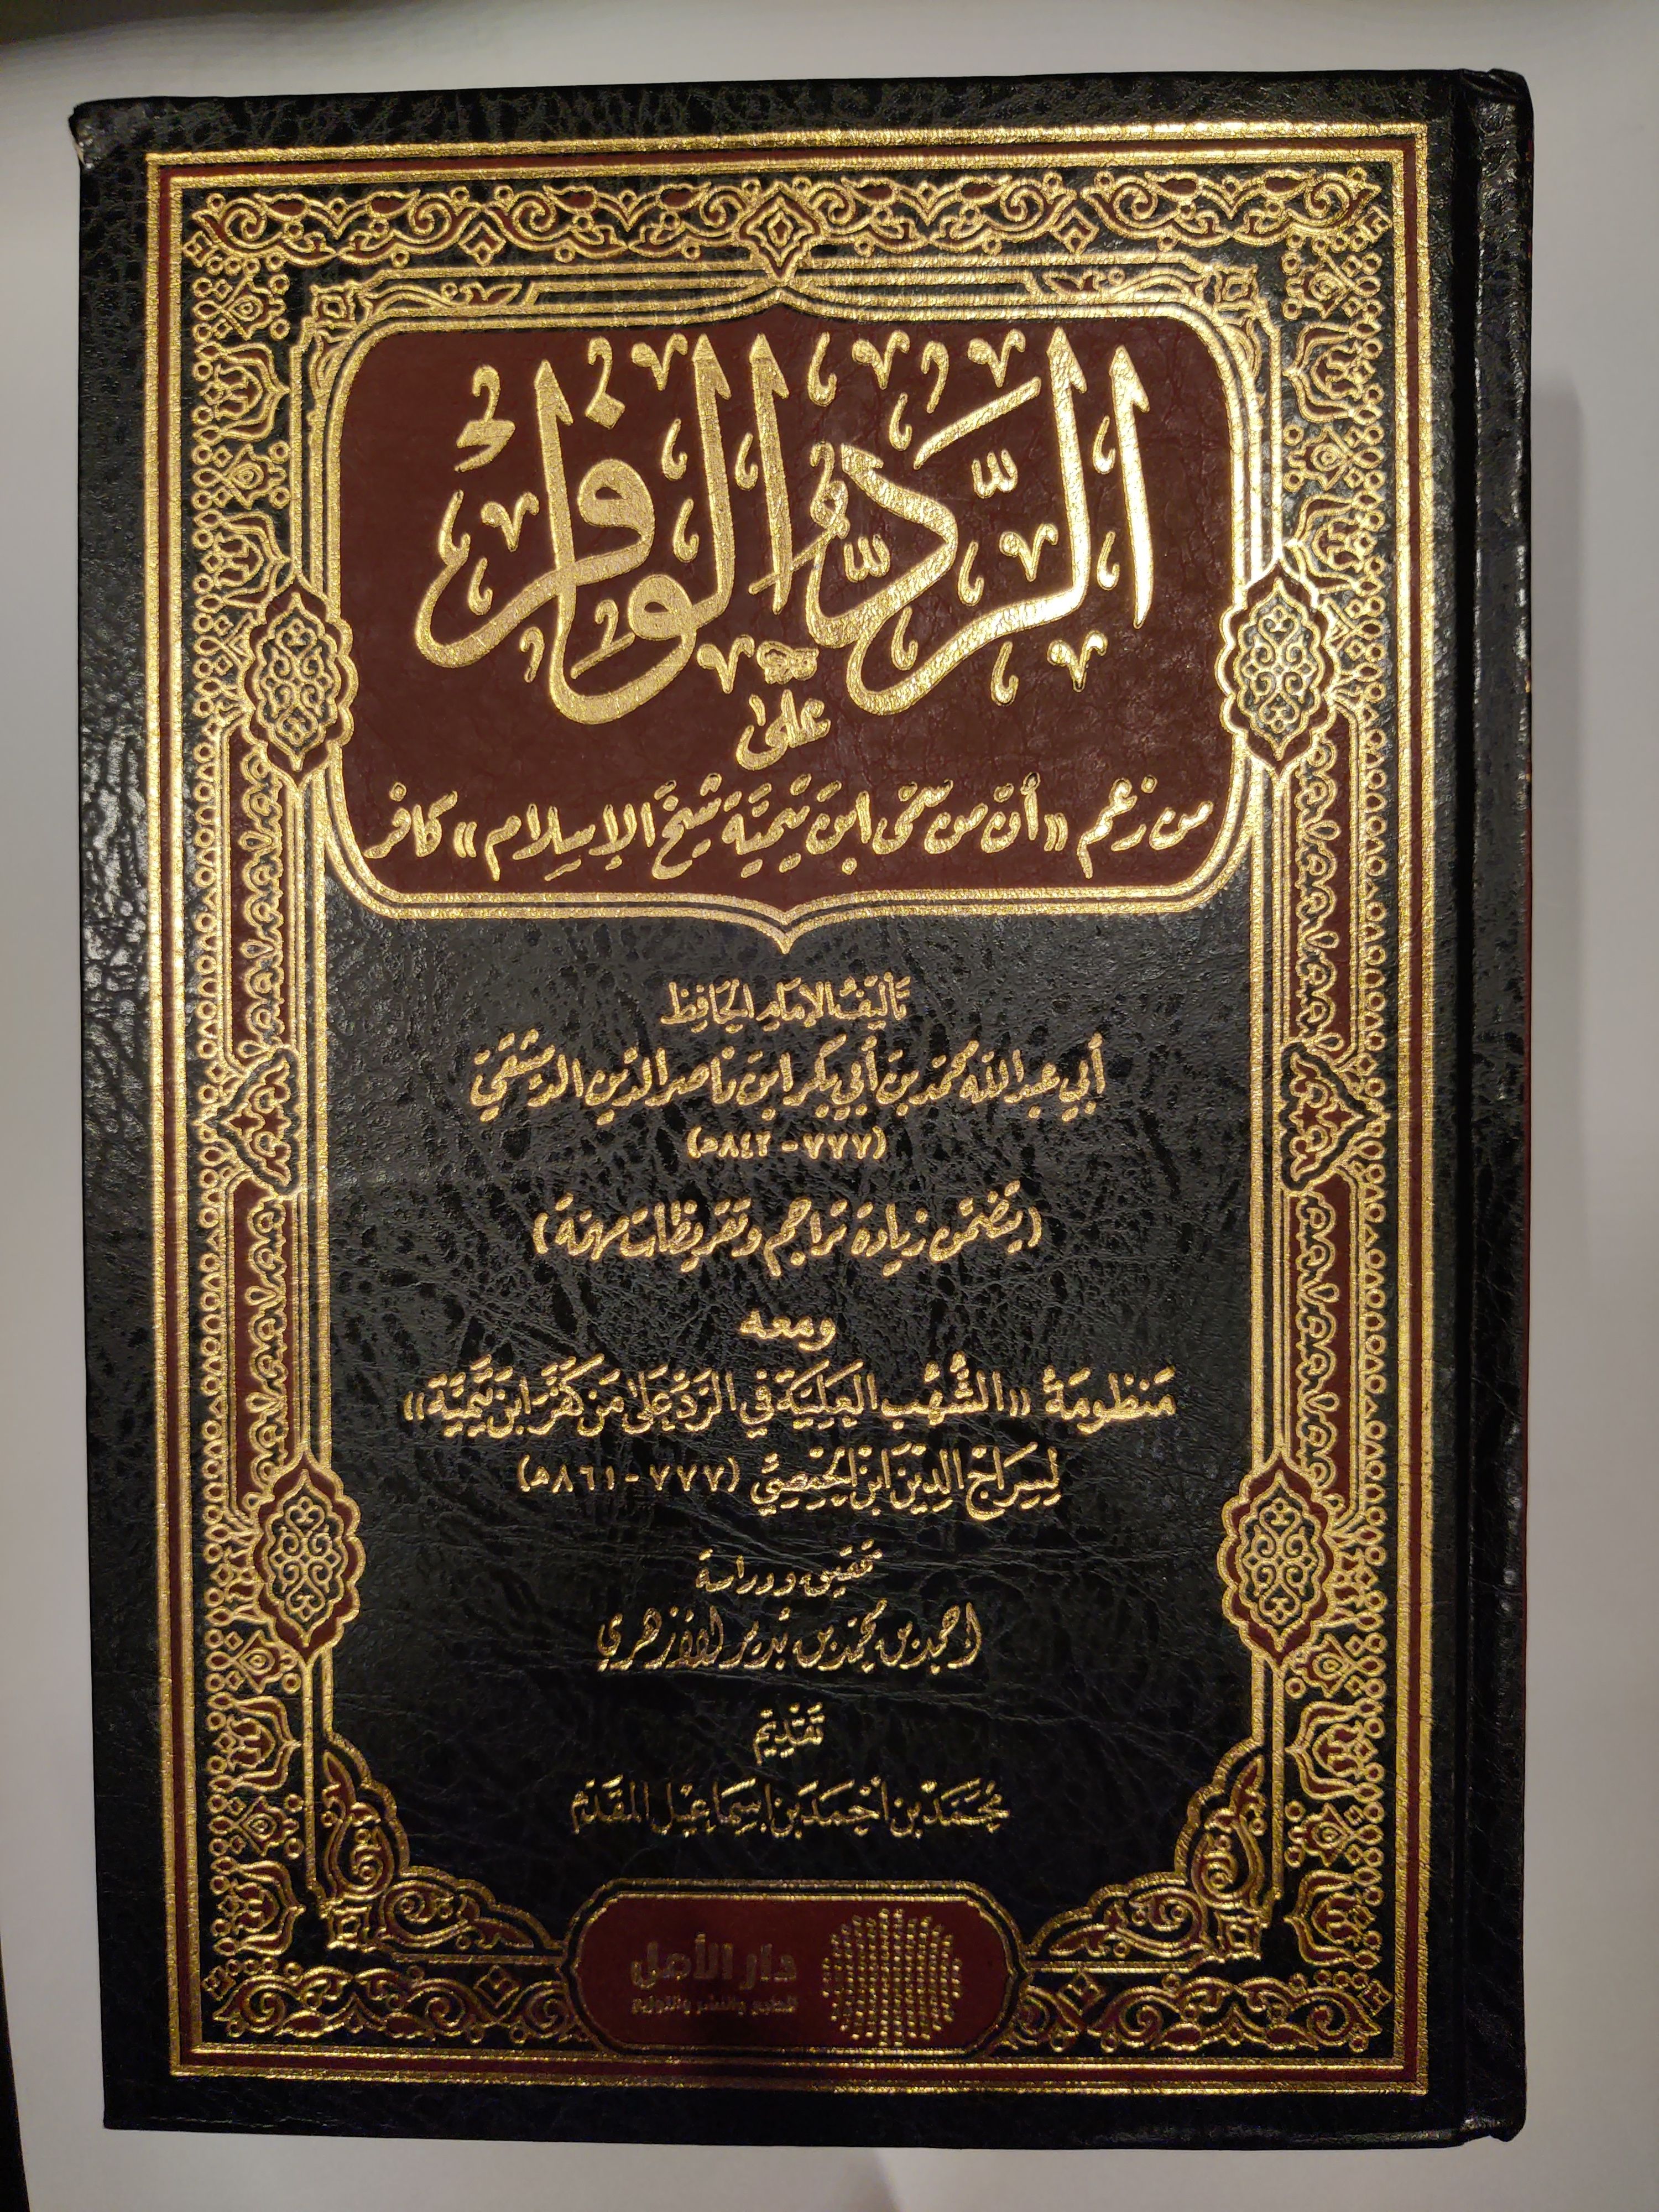 الرَّدُّ الوافِرُ
على
من زعم «أن من سمّى ابنَ تيميَّةَ شيخَ الإسلام» كافر
تأليف الإمام الحافظ
أبي عبد الله محمد بن أبي بكر ابن ناصر الدين الدمشقي
(٧٧٧ - ٨٤٢هـ)
(يتضمن زيادة تراجم وتقريظات مهمة)
ومعه
مَنظومَةُ «الشُّهُب العَلِيَّة في الرَّدِّ عَلى مَن كَفَّرَ ابنَ تَيْمِيَّةَ»
لِسِرَاجِ الدِّينِ ابْنِ الحِمْصِيِّ (٧٧٧ - ٨٦١هـ)
تحقيق ودراسة
أحمد بن محمد بن بُدير الأزهري
تَقْدِيم
مُحَمَّد بن أَحْمَد بن إسْمَاعِيل المقَدَّم
دار الأمل
للطبع والنشر والتوزيع